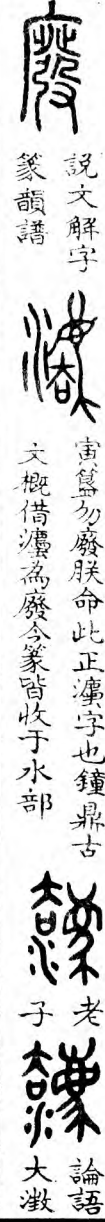 廢
說文解字
篆韻譜
灋
寅簋勿廢朕命此正灋字也鐘鼎古
文概借灋為廢今篆皆收于水部
老
子
論語
大澂